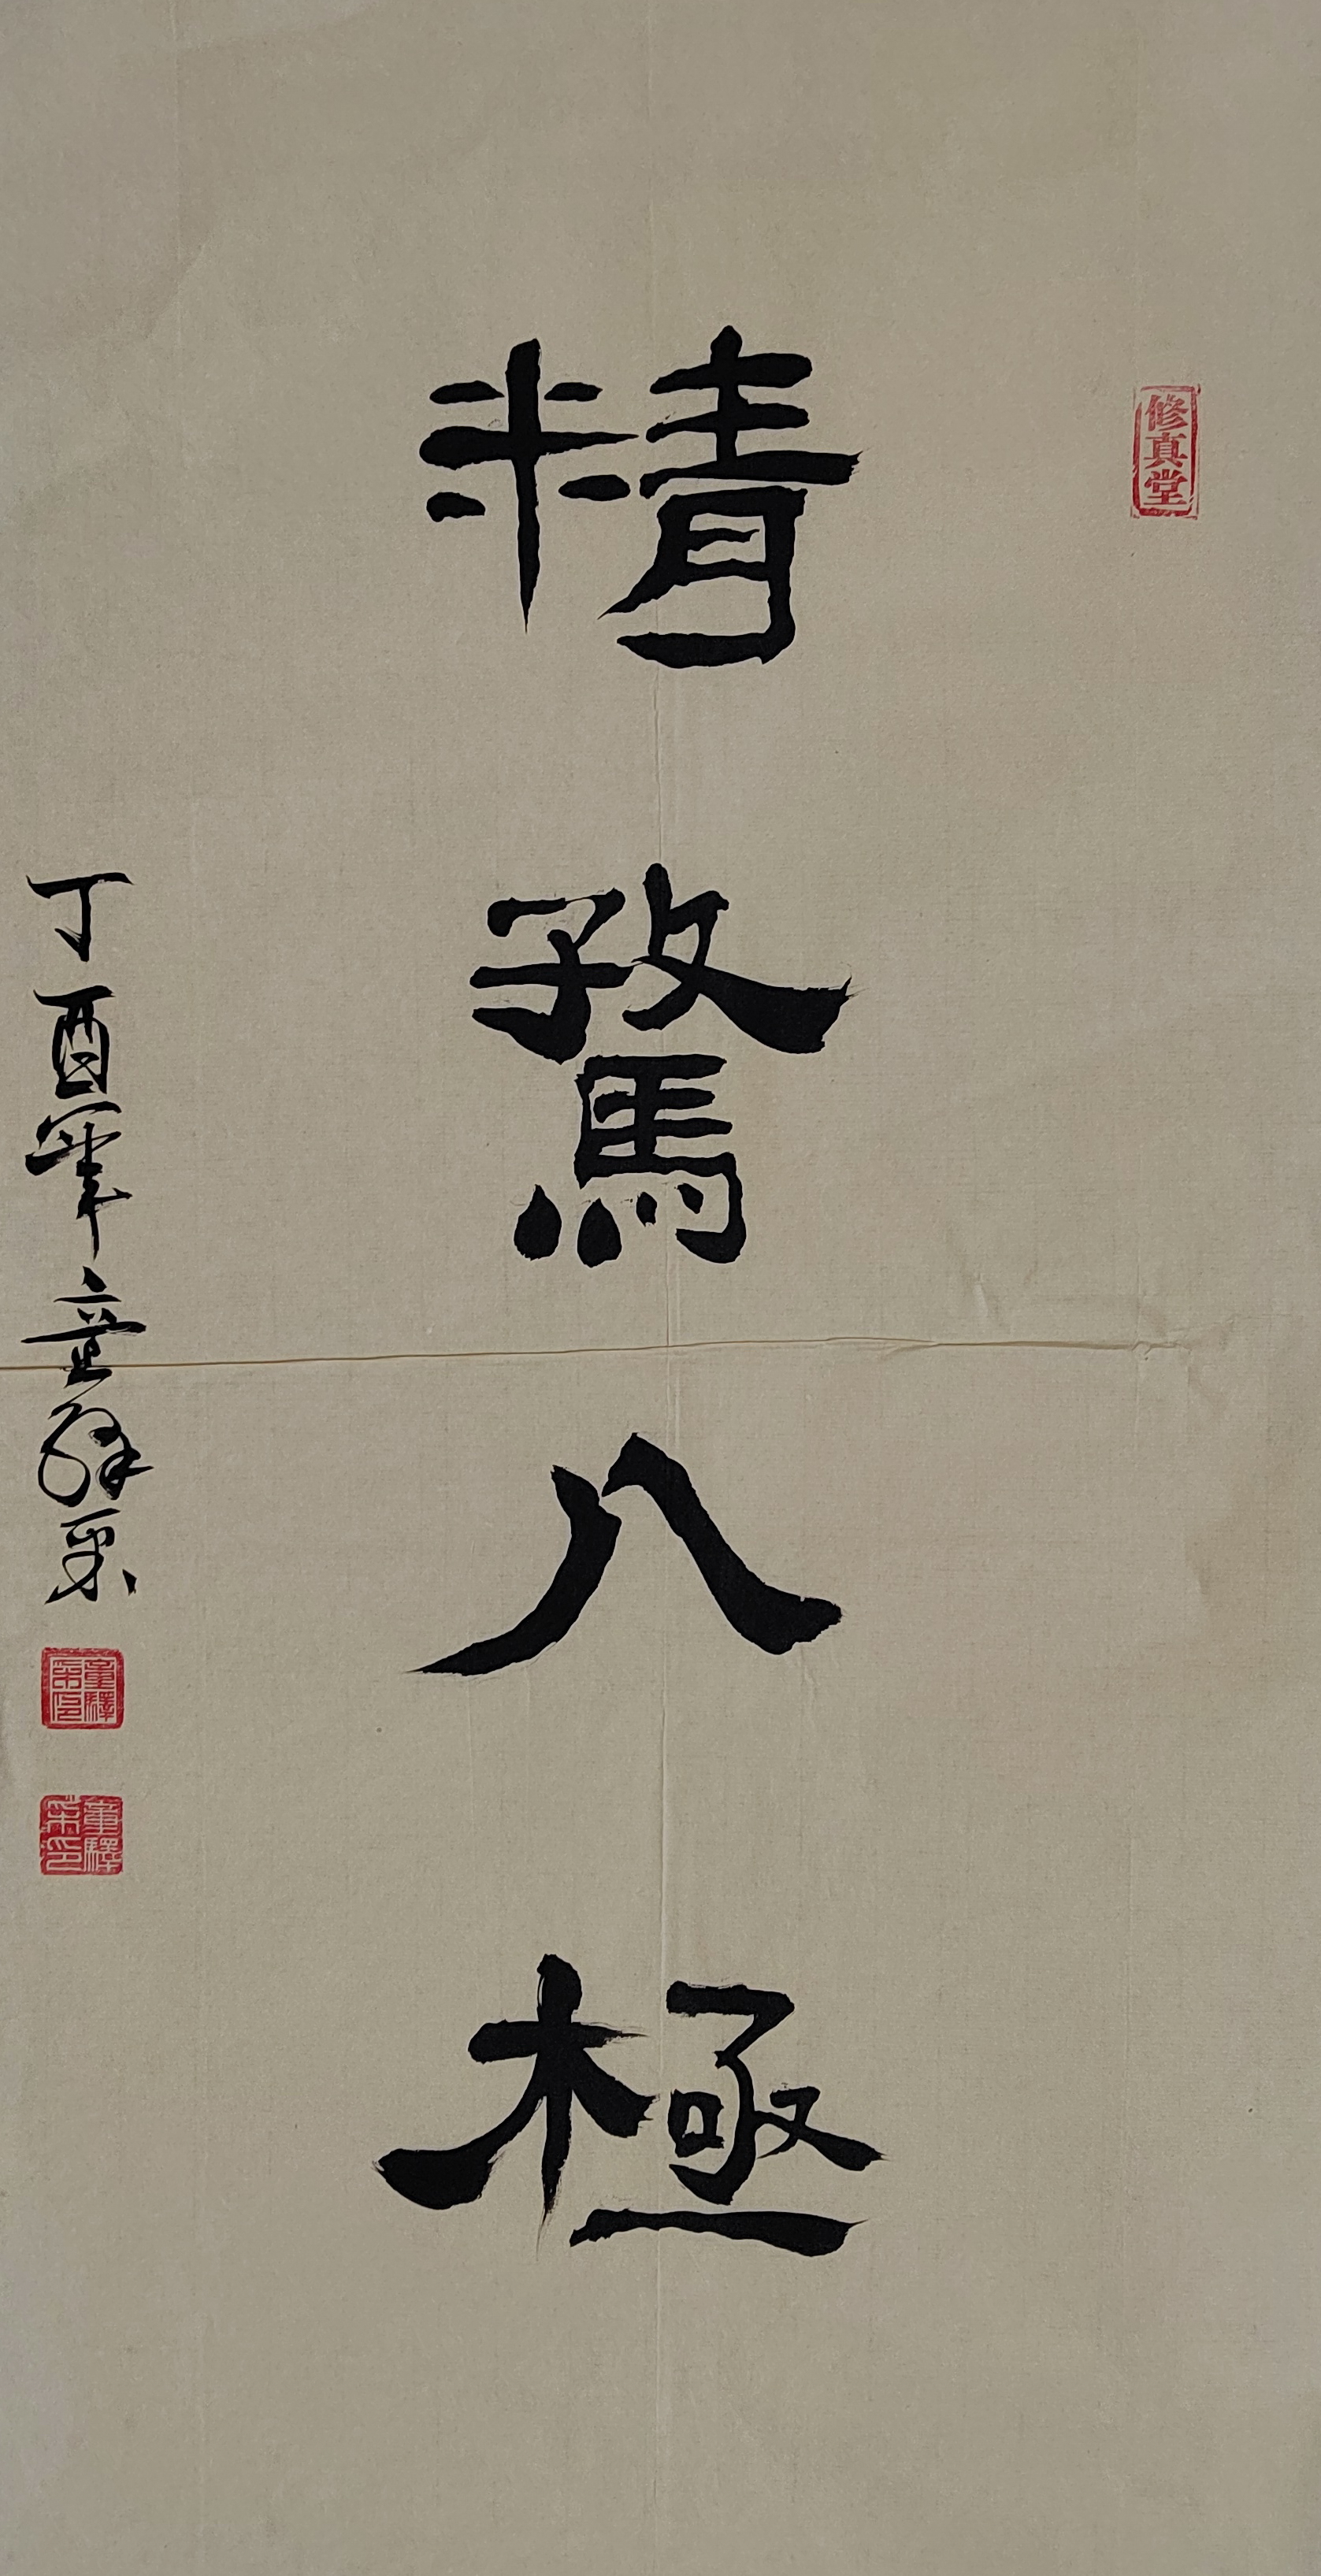 修真堂
精騖八極
丁酉年童